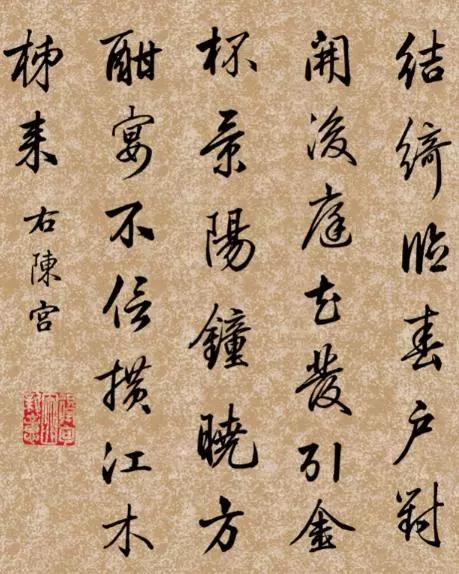 結綺臨春戶對
開後庭花發引金
杯景陽鐘曉方
酣宴不信横江木
柹来
右陳宮